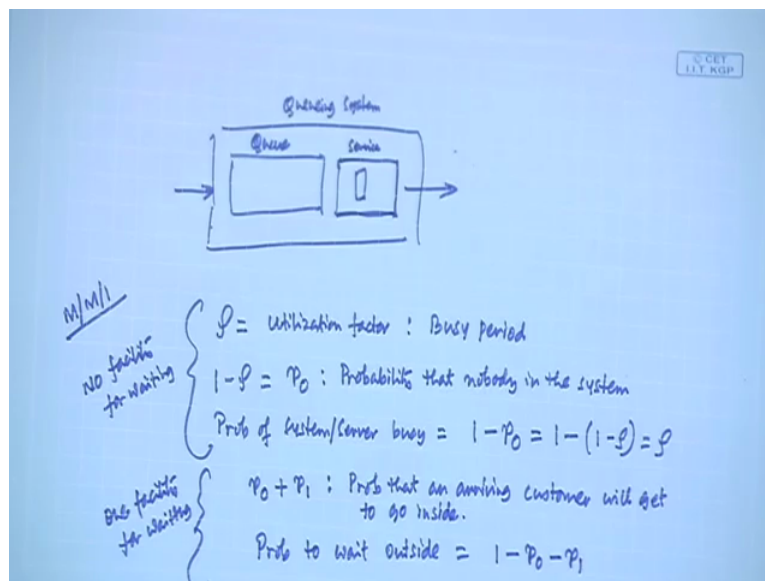 © CET
I.I.T. KGP
Queueing System
Queue
Service
M/M/1
NO facility
for waiting
ρ = utilization factor : Busy period
1-ρ = P₀ : Probability that nobody in the system
Prob of system/server busy = 1-P₀ = 1-(1-ρ) = ρ
One facility
for waiting
P₀ + P₁ : Prob that an arriving customer will get
to go inside.
Prob to wait outside = 1-P₀-P₁